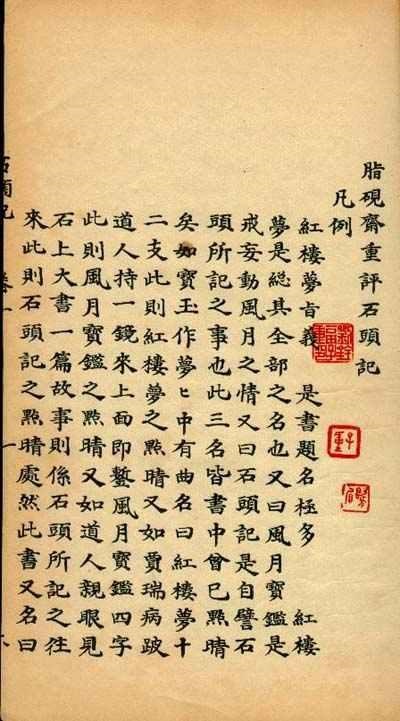 脂硯齋重評石頭記
凡例
紅樓夢旨義 是書題名極多 紅樓
夢是総其全部之名也又曰風月寶鑑是
戒妄動風月之情又曰石頭記是自譬石
頭所記之事也此三名皆書中曾已點晴
矣如寶玉作夢〻中有曲名曰紅樓夢十
二支此則紅樓夢之點晴又如賈瑞病跛
道人持一鏡來上面即鏨風月寶鑑四字
此則風月寶鑑之點晴又如道人親眼見
石上大書一篇故事則係石頭所記之往
來此則石頭記之點晴處然此書又名曰
石頭記 卷一 一
子重